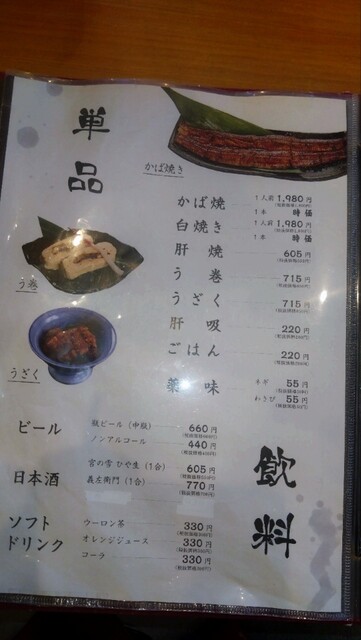 単品
かば焼き
かば焼 1人前 1,980円
1本 時価
白焼き 1人前 1,980円
1本 時価
肝焼 605円
う巻 715円
うざく 715円
肝吸 220円
ごはん 220円
薬味 ネギ 55円
わさび 55円
う巻
うざく
飲料
ビール 瓶ビール(中瓶) 660円
ノンアルコール 440円
日本酒 宮の雪 ひや生(1合) 605円
義左衛門(1合) 770円
ソフトドリンク
ウーロン茶 330円
オレンジジュース 330円
コーラ 330円